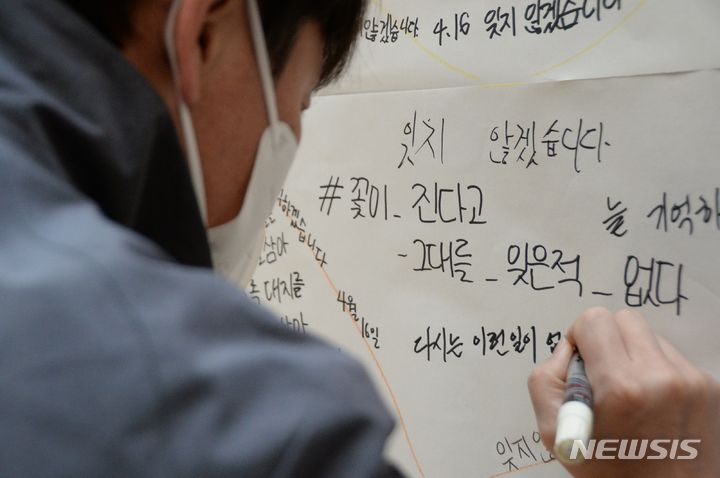 않겠습니다 4.16 잊지 않겠습니다
잊지 않겠습니다.
#꽃이_진다고
늘 기억하
-그대를_잊은적_없다
하겠습니다
삼아
대지를
삼아
4월 16일
다시는 이런일이
잊지
NEWSIS